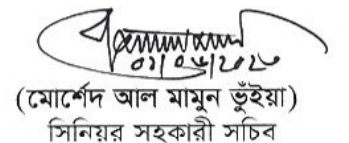 ০১/০৬/২০২৩
(মোর্শেদ আল মামুন ভূঁইয়া)
সিনিয়র সহকারী সচিব